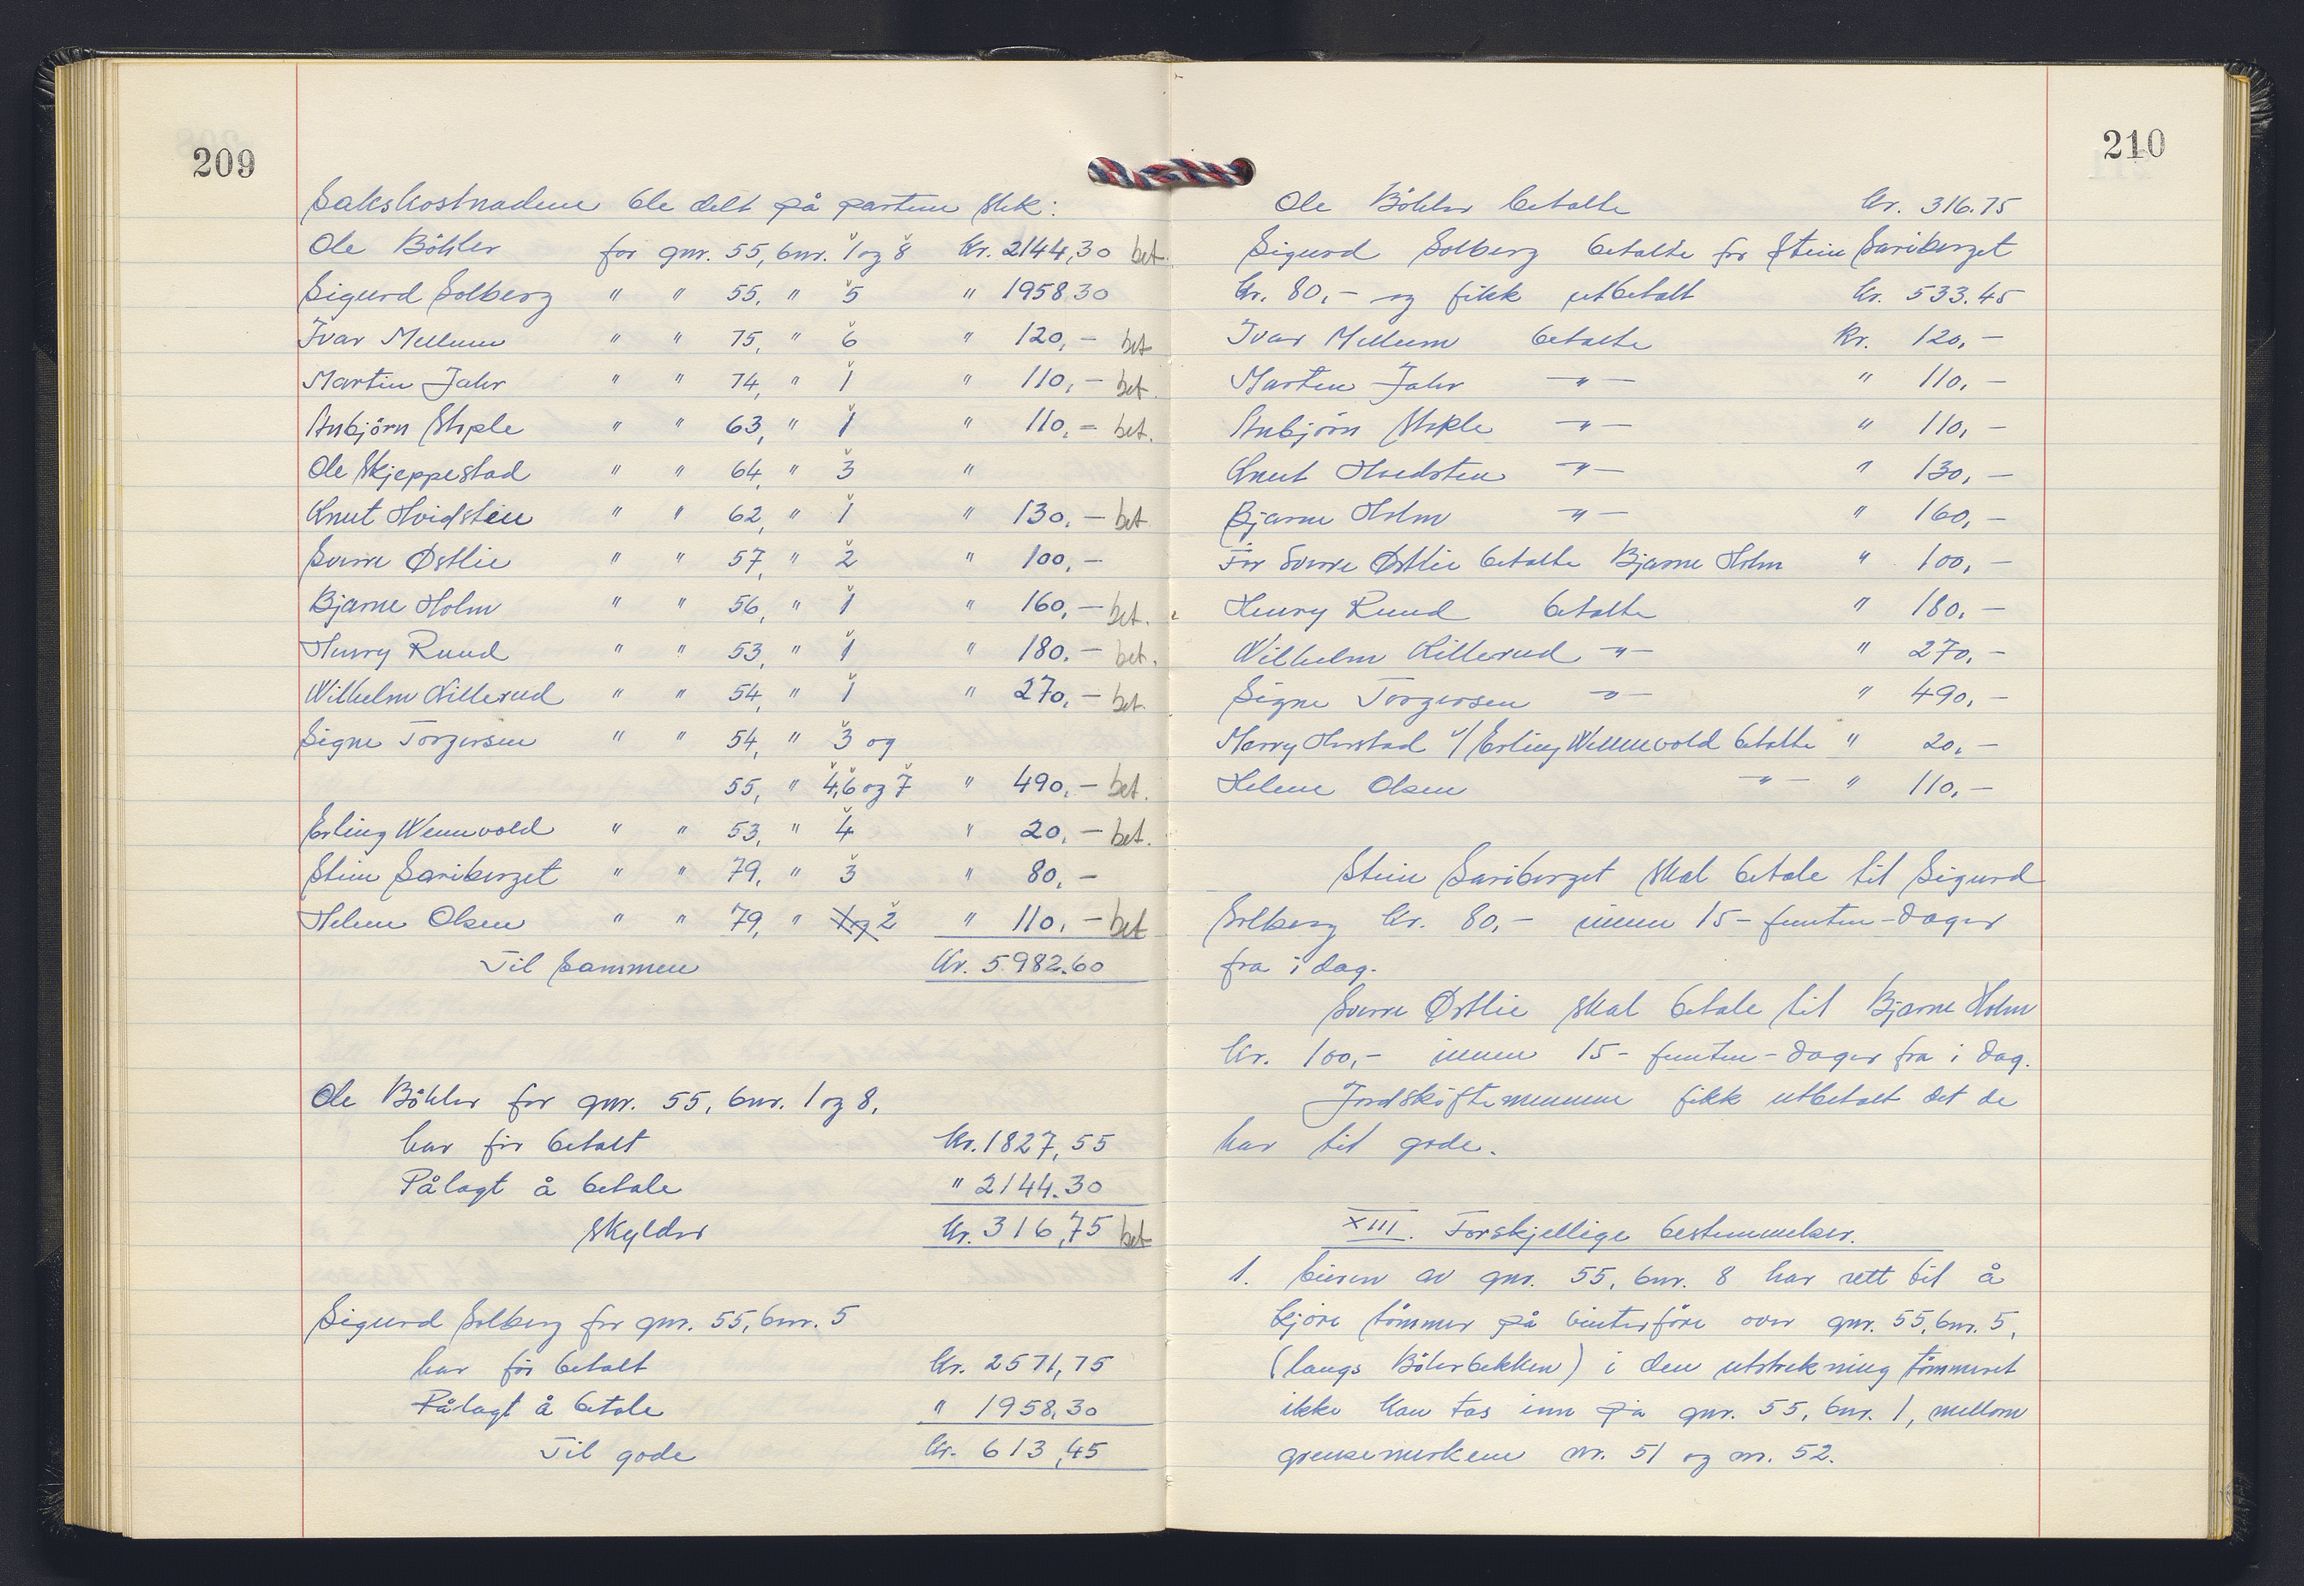 209
Sakskostnadene ble delt på partene slik:
Ole Böhler for gnr. 55, bnr. 1 og 8 Kr. 2144,30 bet.
Sigurd Solberg " " 55, " 5 " 1958.30
Ivar Mellum " " 75, " 6 " 120,- bet
Martin Jahr " " 74, " 1 " 110,- bet.
Anbjörn Sköle " " 63, " 1 " 110,- bet.
Ole Skjeppestad " " 64, " 3 "
Knut Hvidsten " " 62, " 1 " 130,- bet
Sverre Østlie " " 57, " 2 " 100,-
Bjarne Holm " " 56, " 1 " 160,- bet.
Henry Ruud " " 53, " 1 " 180,- bet.
Wilhelm Killerud " " 54, " 1 " 270,- bet.
Signe Torgersen " " 54, " 3 og
55, " 4,6 og 7 " 490,- bet.
Erling Wennvold " " 53, " 4 " 20,- bet.
Stein Sariberget " " 79, " 3 " 80,-
Helene Olsen " " 79, " 1 og 2 " 110,- bet
Til sammen Kr. 5982.60
Ole Böhler for gnr. 55, bnr. 1 og 8,
har för betalt Kr. 1827,55
Pålagt å betale " 2144.30
Skylder Kr. 316,75 bet
Sigurd Solberg for gnr. 55, bnr. 5
har för betalt Kr. 2571,75
Pålagt å betale " 1958,30
Til gode Kr. 613,45
210
Ole Böhler betalte Kr. 316.75
Sigurd Solberg betalte for Stein Sariberget
Kr. 80,- og fikk utbetalt Kr. 533.45
Ivar Mellum betalte Kr. 120,-
Martin Jahr -"- " 110,-
Anbjörn Sköle -"- " 110,-
Knut Hvidsten -"- " 130,-
Bjarne Holm -"- " 160,-
For Sverre Østlie betalte Bjarne Holm " 100,-
Henry Ruud betalte " 180,-
Wilhelm Killerud -"- " 270,-
Signe Torgersen -"- " 490,-
Marry Horstad v/ Erling Wennvold betalte " 20,-
Helene Olsen -"- " 110,-
Stein Sariberget skal betale til Sigurd
Solberg Kr. 80,- innen 15- femten- dager
fra i dag.
Sverre Østlie skal betale til Bjarne Holm
Kr. 100,- innen 15- femten- dager fra i dag.
Jordskiftemennene fikk utbetalt det de
har til gode.
XIII. Forskjellige bestemmelser.
1. Eieren av gnr. 55, bnr. 8 har rett til å
kjöre tömmer på vinterföre over gnr. 55, bnr. 5,
(langs Böhlerbekken) i den utstrekning tömmeret
ikke kan tas inn på gnr. 55, bnr. 1, mellom
grensemerkene nr. 51 og nr. 52.